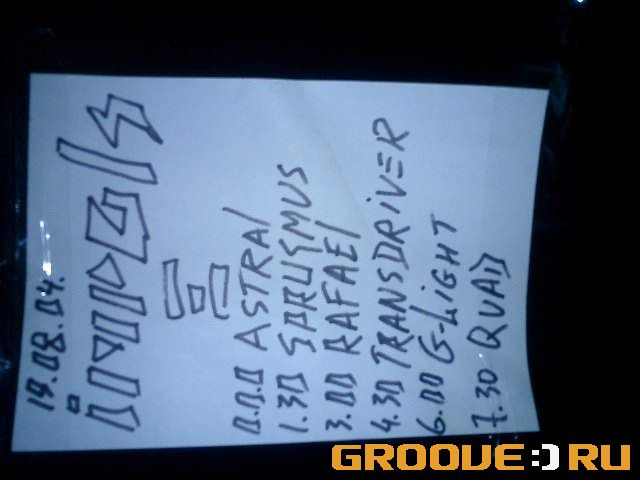 19.08.04.
0.00 ASTRAL
1.30 SPRUSMUS
3.00 RAFAEL
4.30 TRANSDRIVER
6.00 G-LIGHT
7.30 QUAD
GROOVE:)RU